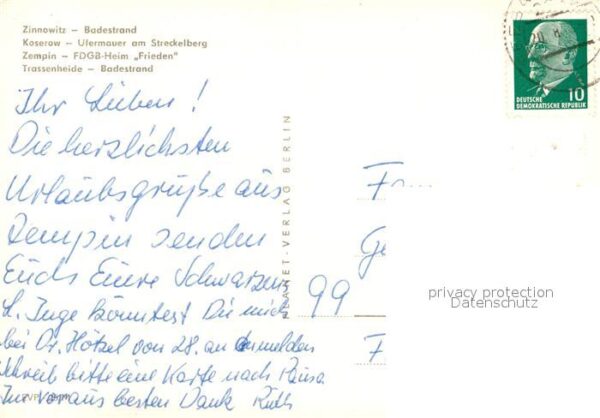 Zinnowitz — Badestrand
Koserow — Ufermauer am Streckelberg
Zempin — FDGB-Heim „Frieden"
Trassenheide — Badestrand
DEUTSCHE
DEMOKRATISCHE REPUBLIK
10
Ihr Lieben!
Die herzlichsten
Urlaubsgrüße aus
Zempin senden
Euch Eure Schwarzen
L. Inge könntest Du mich
bei Dr. Hötzel von 28. an anmelden
schreib bitte eine Karte nach Hause
Im voraus besten Dank Ruth
PLANET-VERLAG BERLIN
Fr
Ge
99
F
privacy protection
Datenschutz